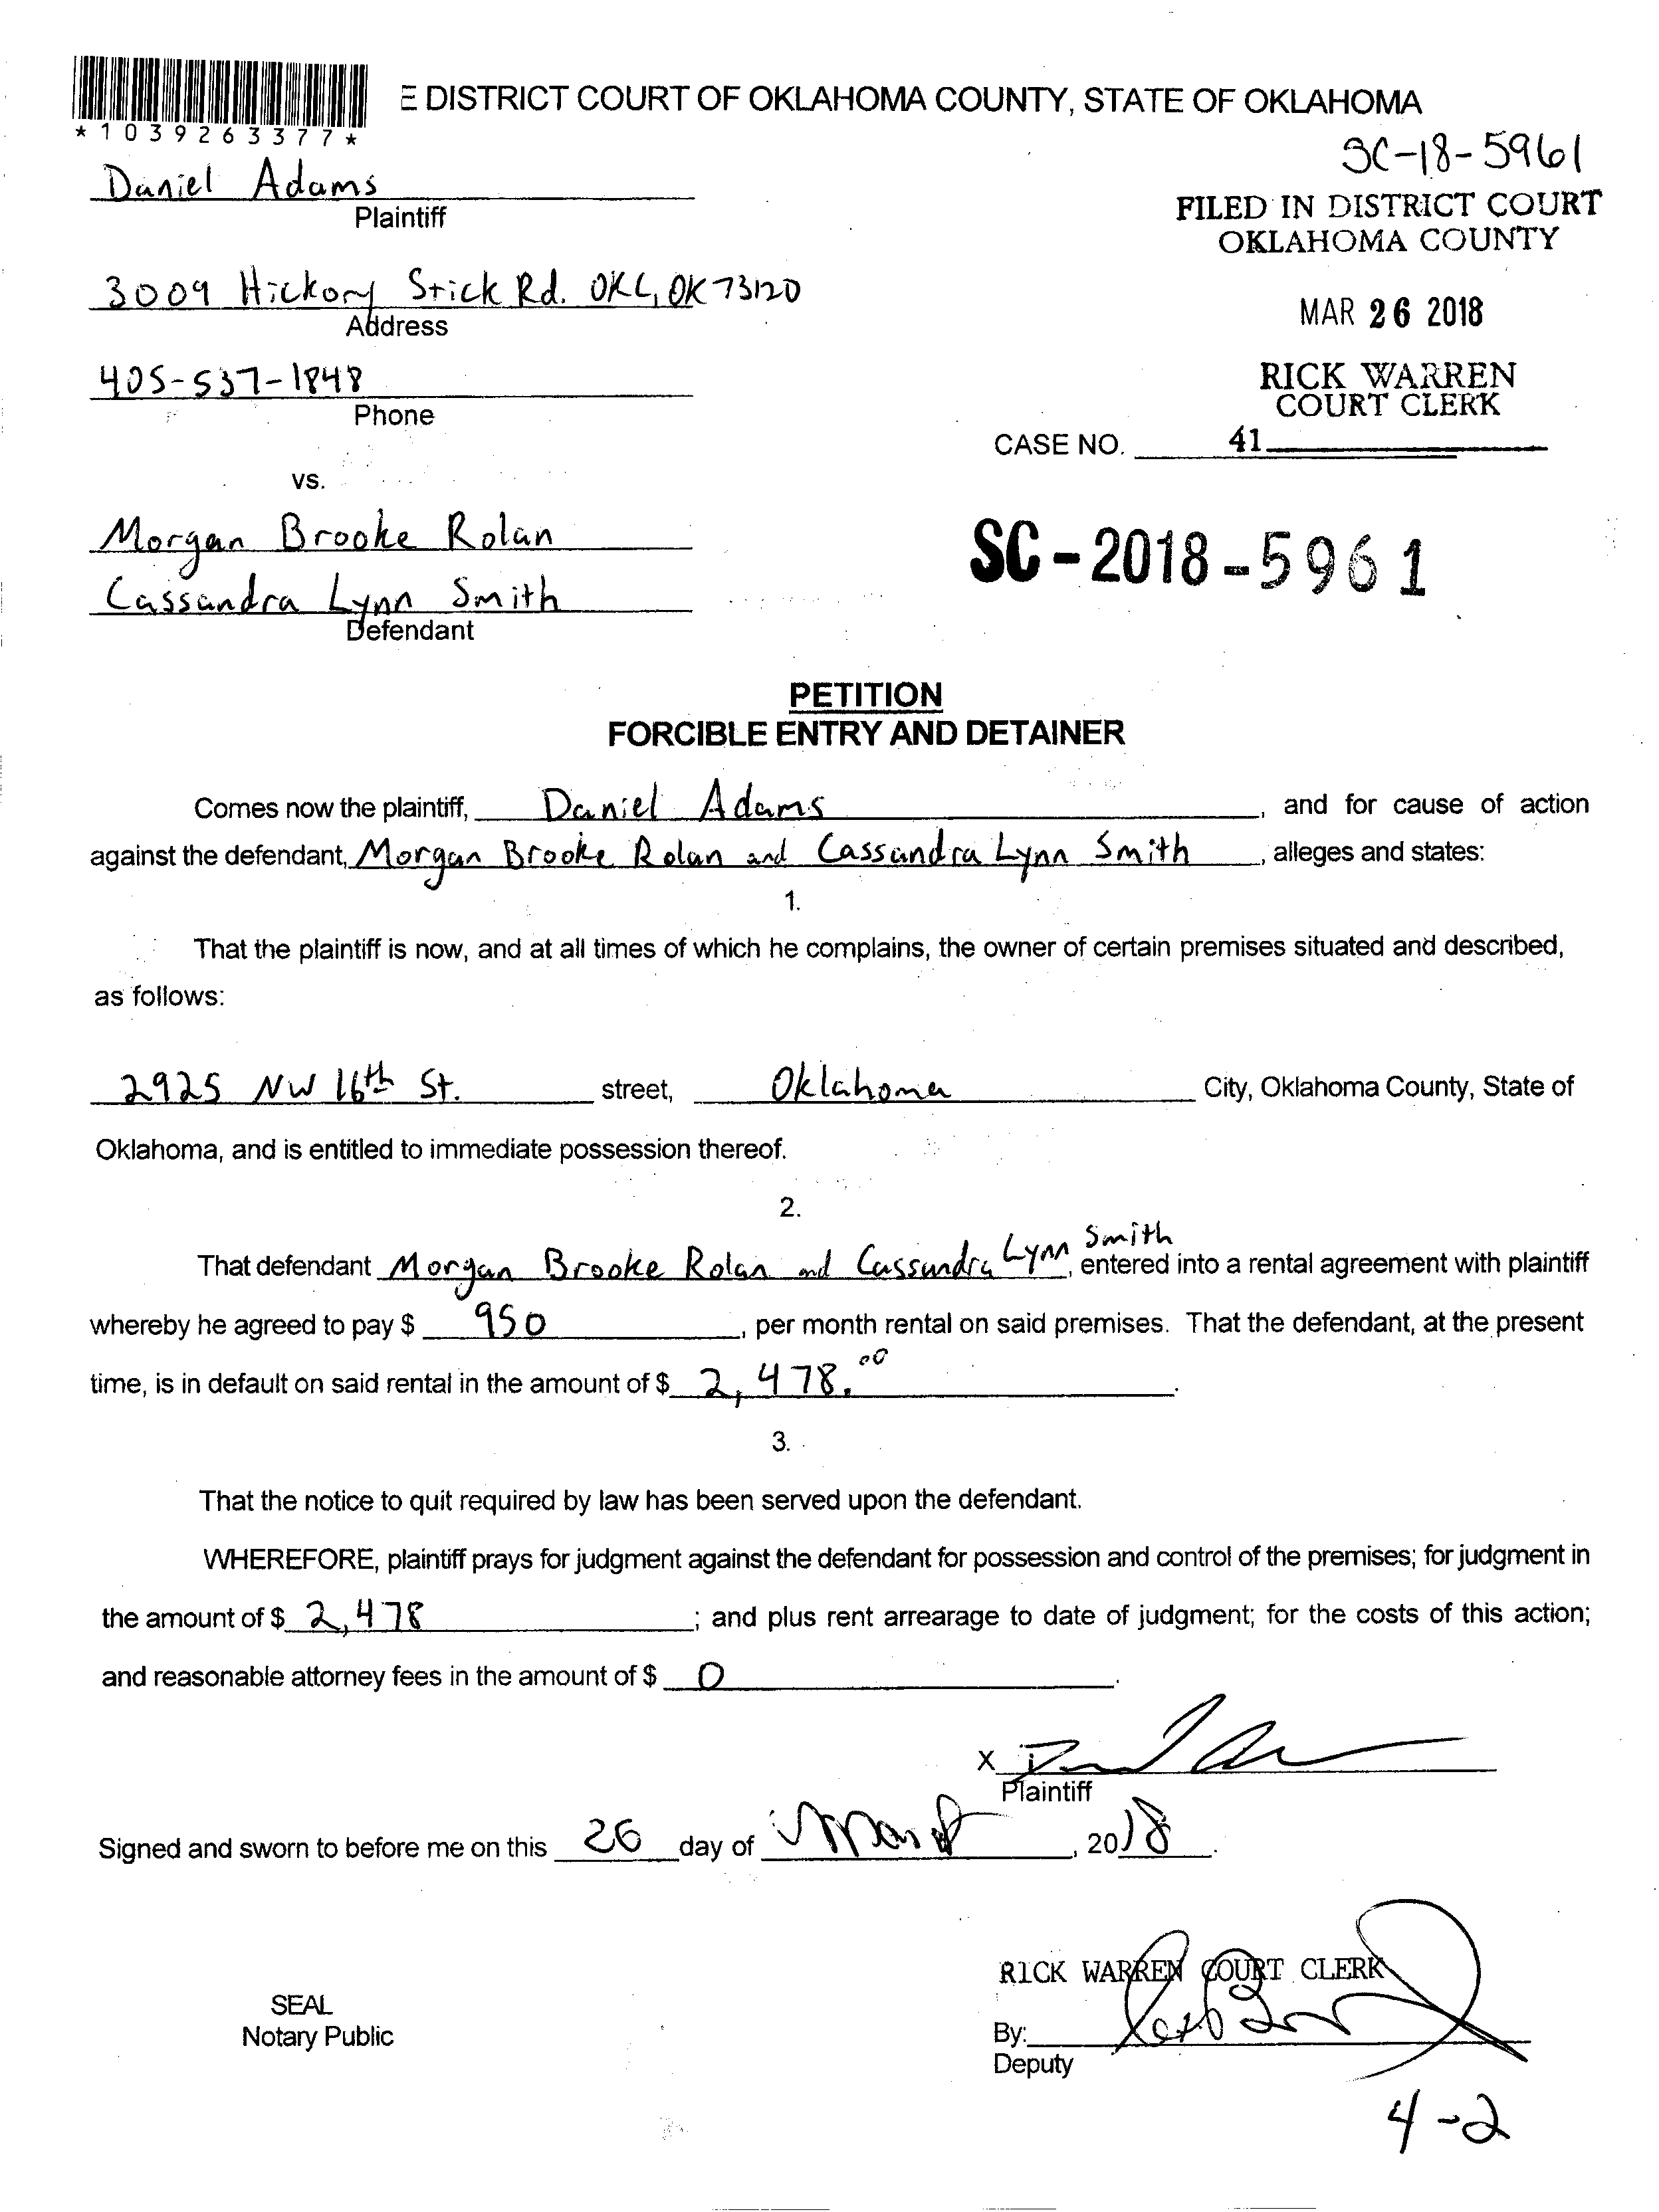 E DISTRICT COURT OF OKLAHOMA COUNTY, STATE OF OKLAHOMA
*1039263377*
SC-18-5961
Daniel Adams
Plaintiff
FILED IN DISTRICT COURT
OKLAHOMA COUNTY
3009 Hickory Stick Rd. OKC, OK 73120
Address
MAR 26 2018
405-537-1848
Phone
RICK WARREN
COURT CLERK
CASE NO. 41
vs.
Morgan Brooke Rolan
Cassandra Lynn Smith
Defendant
SC-2018-5961
PETITION
FORCIBLE ENTRY AND DETAINER
Comes now the plaintiff, Daniel Adams, and for cause of action
against the defendant, Morgan Brooke Rolan and Cassandra Lynn Smith, alleges and states:
1.
That the plaintiff is now, and at all times of which he complains, the owner of certain premises situated and described,
as follows:
2925 NW 16th St. street, Oklahoma City, Oklahoma County, State of
Oklahoma, and is entitled to immediate possession thereof.
2.
That defendant Morgan Brooke Rolan and Cassandra Lynn Smith, entered into a rental agreement with plaintiff
whereby he agreed to pay $ 950, per month rental on said premises. That the defendant, at the present
time, is in default on said rental in the amount of $ 2,478.00.
3.
That the notice to quit required by law has been served upon the defendant.
WHEREFORE, plaintiff prays for judgment against the defendant for possession and control of the premises; for judgment in
the amount of $ 2,478; and plus rent arrearage to date of judgment; for the costs of this action;
and reasonable attorney fees in the amount of $ 0.
X
Plaintiff
Signed and sworn to before me on this 26 day of March, 2018.
RICK WARREN COURT CLERK
SEAL
Notary Public
By:
Deputy
4-2